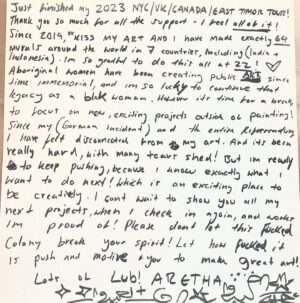 Just finished my 2023 NYC/UK/CANADA/EAST TIMOR TOUR!
Thank you so much for all the support - I feel all of it!
Since 2019, "KISS MY ART AND I have made exactly 64
murals around the world in 7 countries, Including (India +
Indonesia). Im so grateful to do this all at 22!
Aboriginal women have been creating public ART since
time immemorial, and im so lucky to continue that
legacy as a blak woman. However its time for a break
to focus on new, exciting projects outside of painting!
Since my (German incident) and th entire Referendum
I have felt disconnected from my art. And its been
really hard, with many tears shed! But im ready
to keep pushing, because I know exactly what I
want to do next! Which is an exciting place to
be creatively. I cant wait to show you all my
next projects, when I check in again, and works
Im proud of! Please dont let this fucked
Colony break your spirit! Let how fucked it
is push and motivate you to make great art!
Lots of Lub! ARETHA